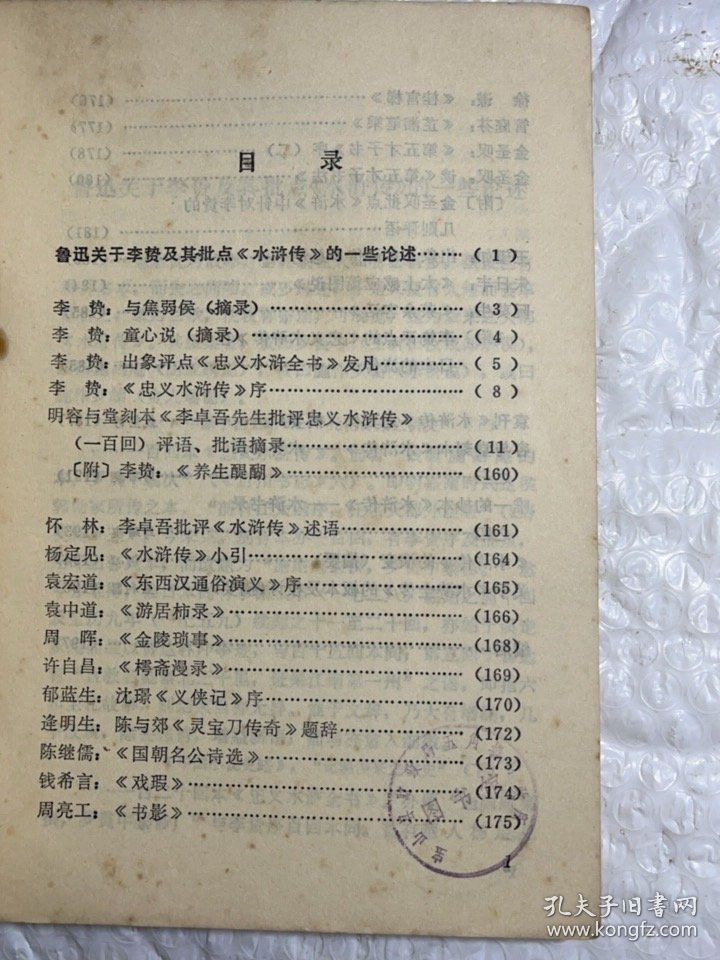 目 录
鲁迅关于李贽及其批点《水浒传》的一些论述………（ 1 ）
李 贽：与焦弱侯（摘录）………（ 3 ）
李 贽：童心说（摘录）………（ 4 ）
李 贽：出象评点《忠义水浒全书》发凡………（ 5 ）
李 贽：《忠义水浒传》序………（ 8 ）
明容与堂刻本《李卓吾先生批评忠义水浒传》
（一百回）评语、批语摘录………（11）
〔附〕李贽：《养生醍醐》………（160）
怀 林：李卓吾批评《水浒传》述语………（161）
杨定见：《水浒传》小引………（164）
袁宏道：《东西汉通俗演义》序………（165）
袁中道：《游居柿录》………（166）
周 晖：《金陵琐事》………（168）
许自昌：《樗斋漫录》………（169）
郁蓝生：沈璟《义侠记》序………（170）
逄明生：陈与郊《灵宝刀传奇》题辞………（172）
陈继儒：《国朝名公诗选》………（173）
钱希言：《戏瑕》………（174）
周亮工：《书影》………（175）
1
孔夫子旧书网
kongfz.com